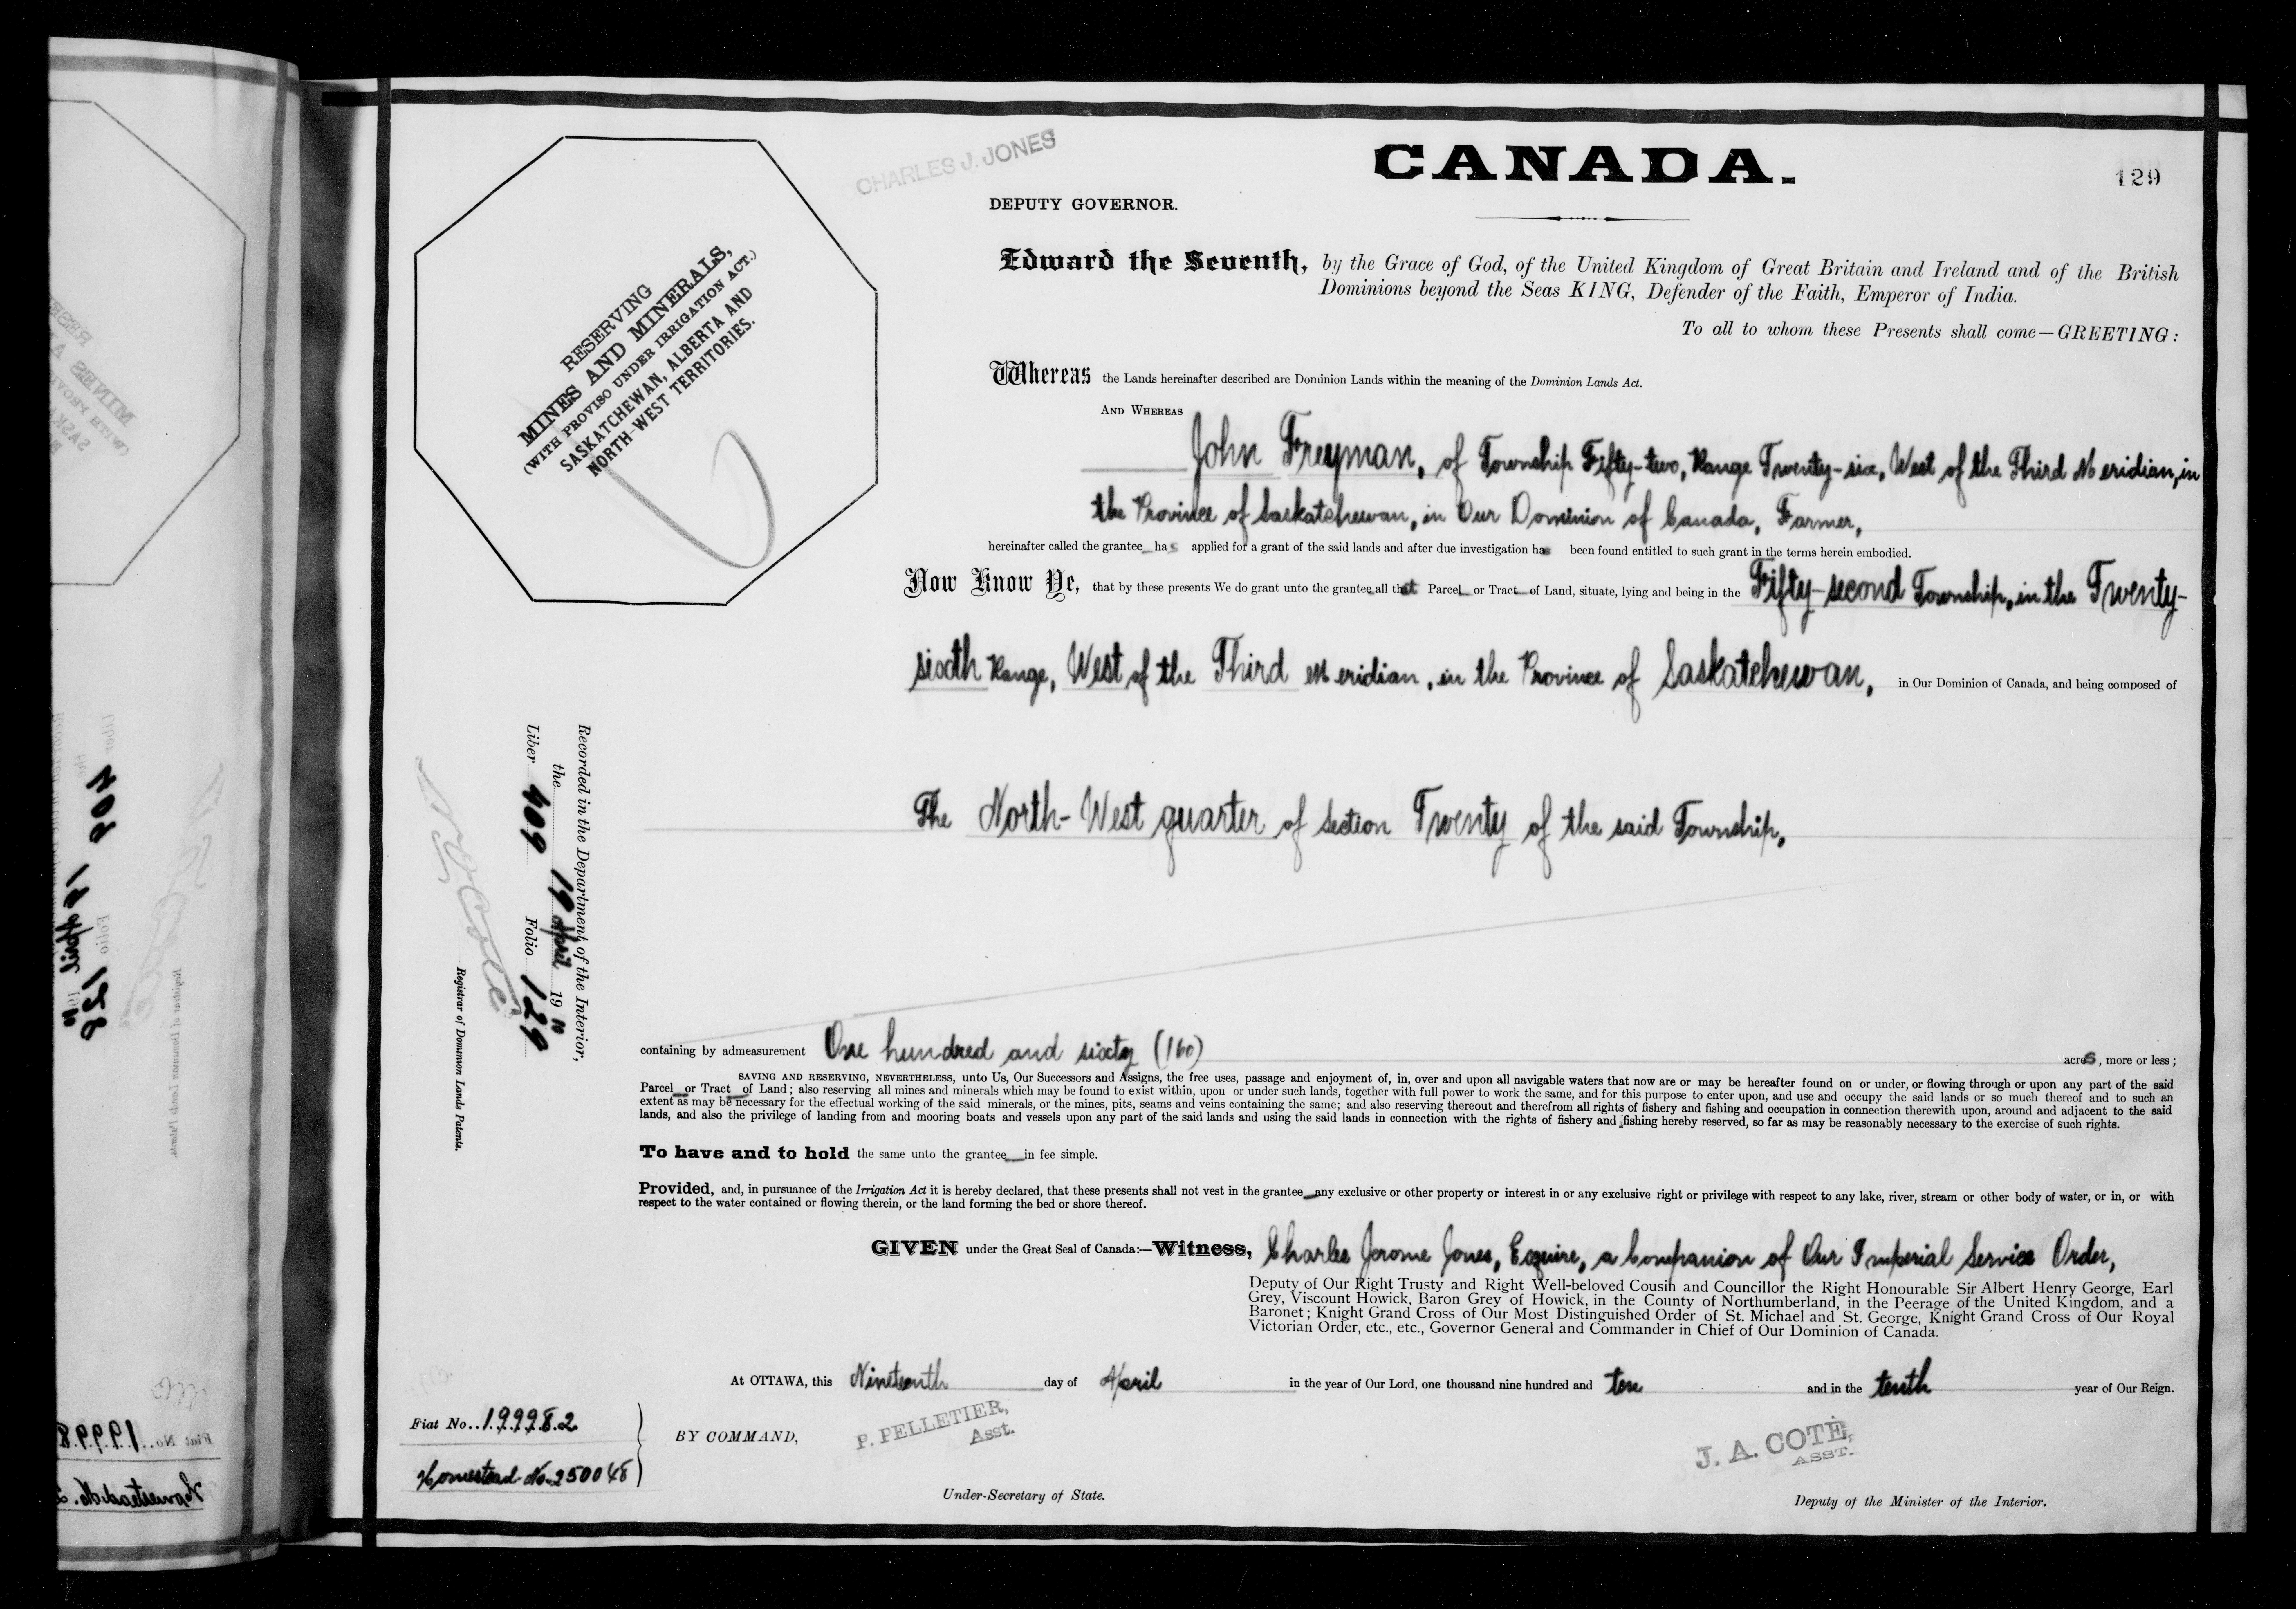 CHARLES J. JONES
CANADA.
129
DEPUTY GOVERNOR.
Edward the Seventh, by the Grace of God, of the United Kingdom of Great Britain and Ireland and of the British
Dominions beyond the Seas KING, Defender of the Faith, Emperor of India.
To all to whom these Presents shall come—GREETING:
RESERVING
MINES AND MINERALS,
(WITH PROVISO UNDER IRRIGATION ACT.)
SASKATCHEWAN, ALBERTA AND
NORTH-WEST TERRITORIES.
Whereas the Lands hereinafter described are Dominion Lands within the meaning of the Dominion Lands Act.
AND WHEREAS
John Freyman, of Township Fifty-two, Range Twenty-six, West of the Third Meridian, in
the Province of Saskatchewan, in Our Dominion of Canada, Farmer,
hereinafter called the grantee has applied for a grant of the said lands and after due investigation has been found entitled to such grant in the terms herein embodied.
Now Know Ye, that by these presents We do grant unto the grantee all that Parcel or Tract of Land, situate, lying and being in the Fifty-second Township, in the Twenty-
sixth Range, West of the Third Meridian, in the Province of Saskatchewan, in Our Dominion of Canada, and being composed of
The North-West quarter of Section Twenty of the said Township,
Recorded in the Department of the Interior,
the 19 April 1910
Liber 409 Folio 129
Registrar of Dominion Lands Patents.
containing by admeasurement One hundred and sixty (160) acres, more or less;
SAVING AND RESERVING, NEVERTHELESS, unto Us, Our Successors and Assigns, the free uses, passage and enjoyment of, in, over and upon all navigable waters that now are or may be hereafter found on or under, or flowing through or upon any part of the said
Parcel or Tract of Land; also reserving all mines and minerals which may be found to exist within, upon or under such lands, together with full power to work the same, and for this purpose to enter upon, and use and occupy the said lands or so much thereof and to such an
extent as may be necessary for the effectual working of the said minerals, or the mines, pits, seams and veins containing the same; and also reserving thereout and therefrom all rights of fishery and fishing and occupation in connection therewith upon, around and adjacent to the said
lands, and also the privilege of landing from and mooring boats and vessels upon any part of the said lands and using the said lands in connection with the rights of fishery and fishing hereby reserved, so far as may be reasonably necessary to the exercise of such rights.
To have and to hold the same unto the grantee in fee simple.
Provided, and, in pursuance of the Irrigation Act it is hereby declared, that these presents shall not vest in the grantee any exclusive or other property or interest in or any exclusive right or privilege with respect to any lake, river, stream or other body of water, or in, or with
respect to the water contained or flowing therein, or the land forming the bed or shore thereof.
GIVEN under the Great Seal of Canada:—Witness, Charles Jerome Jones, Esquire, a Companion of Our Imperial Service Order,
Deputy of Our Right Trusty and Right Well-beloved Cousin and Councillor the Right Honourable Sir Albert Henry George, Earl
Grey, Viscount Howick, Baron Grey of Howick, in the County of Northumberland, in the Peerage of the United Kingdom, and a
Baronet; Knight Grand Cross of Our Most Distinguished Order of St. Michael and St. George, Knight Grand Cross of Our Royal
Victorian Order, etc., etc., Governor General and Commander in Chief of Our Dominion of Canada.
At OTTAWA, this Nineteenth day of April in the year of Our Lord, one thousand nine hundred and ten and in the tenth year of Our Reign.
Fiat No. 199982
Homestead No. 250048
BY COMMAND,
P. PELLETIER,
Asst.
Under-Secretary of State.
J. A. COTÉ,
ASST.
Deputy of the Minister of the Interior.